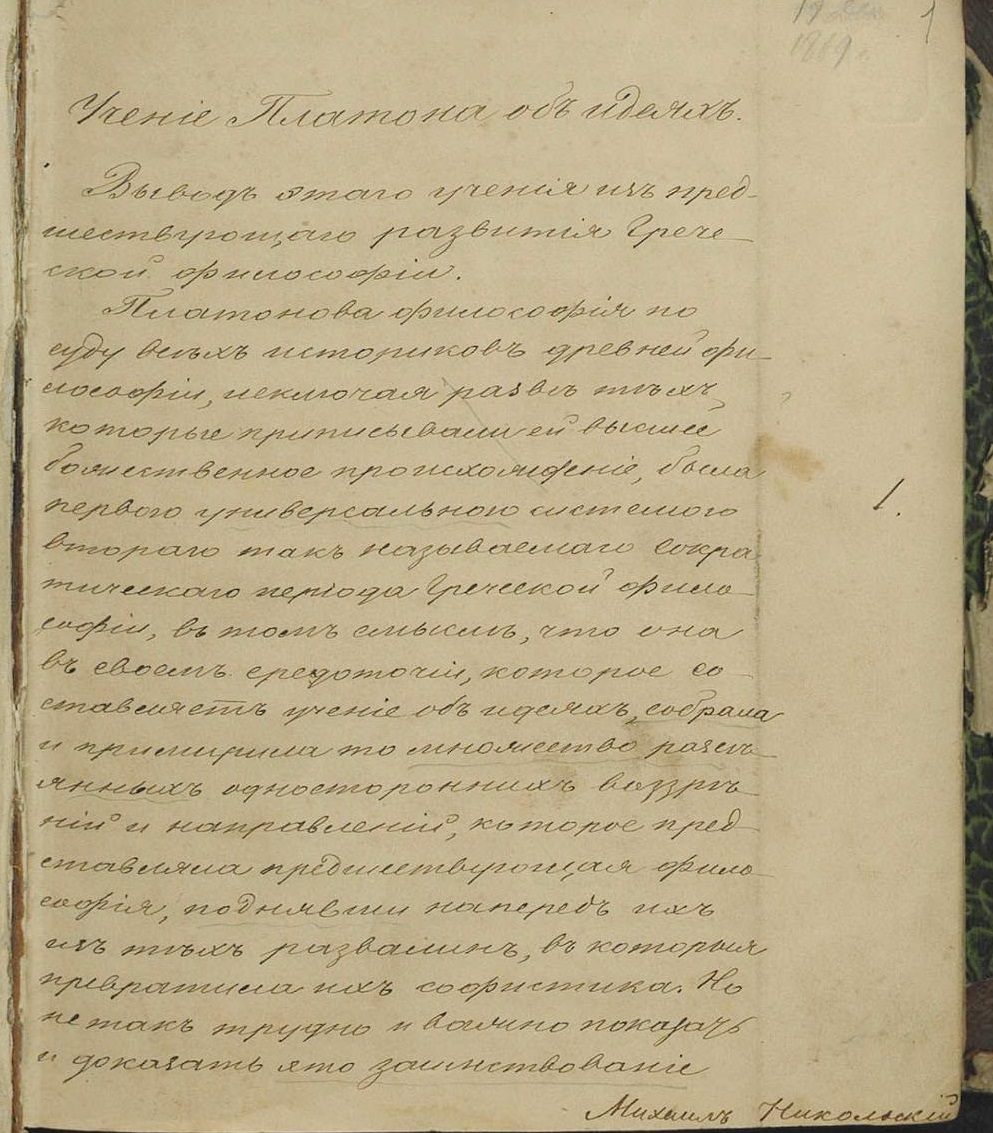 19 Дек
1
1869 г.
Ученіе Платона объ идеяхъ.
Выводъ этаго ученія изъ пред-
шествующаго развитія Грече-
ской философіи.
Платонова философія по
суду всѣхъ историковъ древней фи-
лософіи, исключая развѣ тѣхъ,
которые приписывали ей высшее
божественное происхожденіе, была
первою универсальною системою
1.
втораго такъ называемаго Сокра-
тическаго періода Греческой фило-
софіи, въ томъ смыслѣ, что она
въ своемъ средоточіи, которое со-
ставляетъ ученіе объ идеяхъ, собрала
и примирила то множество разсѣ-
янныхъ одностороннихъ воззрѣ-
ній и направленій, которое пред-
ставляла предшествующая фило-
софія, поднявши напередъ ихъ
изъ тѣхъ развалинъ, въ которыя
превратила ихъ софистика. Но
не такъ трудно и важно показать
и доказать это заимствованіе
Михаилъ Никольскій